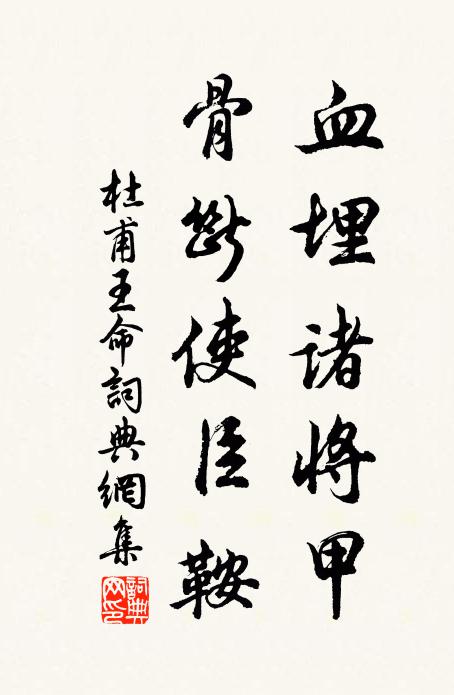 血埋諸将甲
骨斷使臣鞍
杜甫王命詞典網集
詞典網印